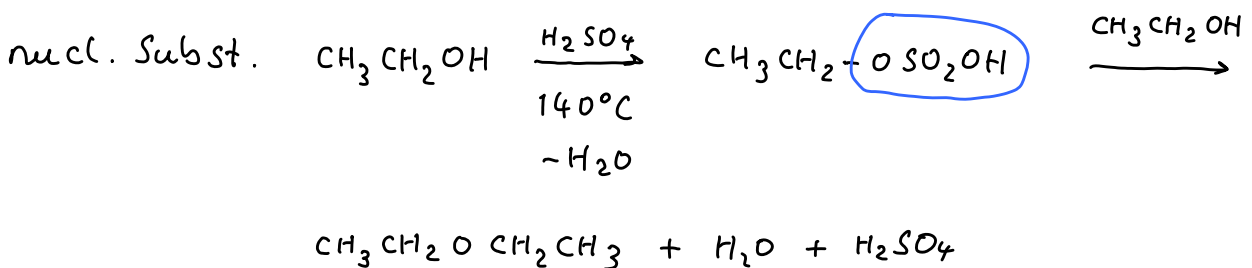 nucl. Subst. CH₃CH₂OH H₂SO₄ 140°C -H₂O CH₃CH₂-OSO₂OH CH₃CH₂OH
CH₃CH₂OCH₂CH₃ + H₂O + H₂SO₄